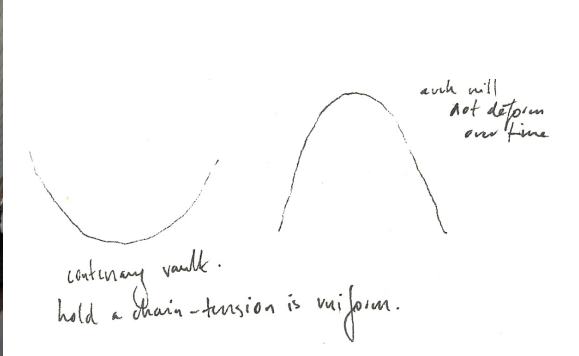 arch will
not deform
over time
contenary vault.
hold a chain-tension is uniform.